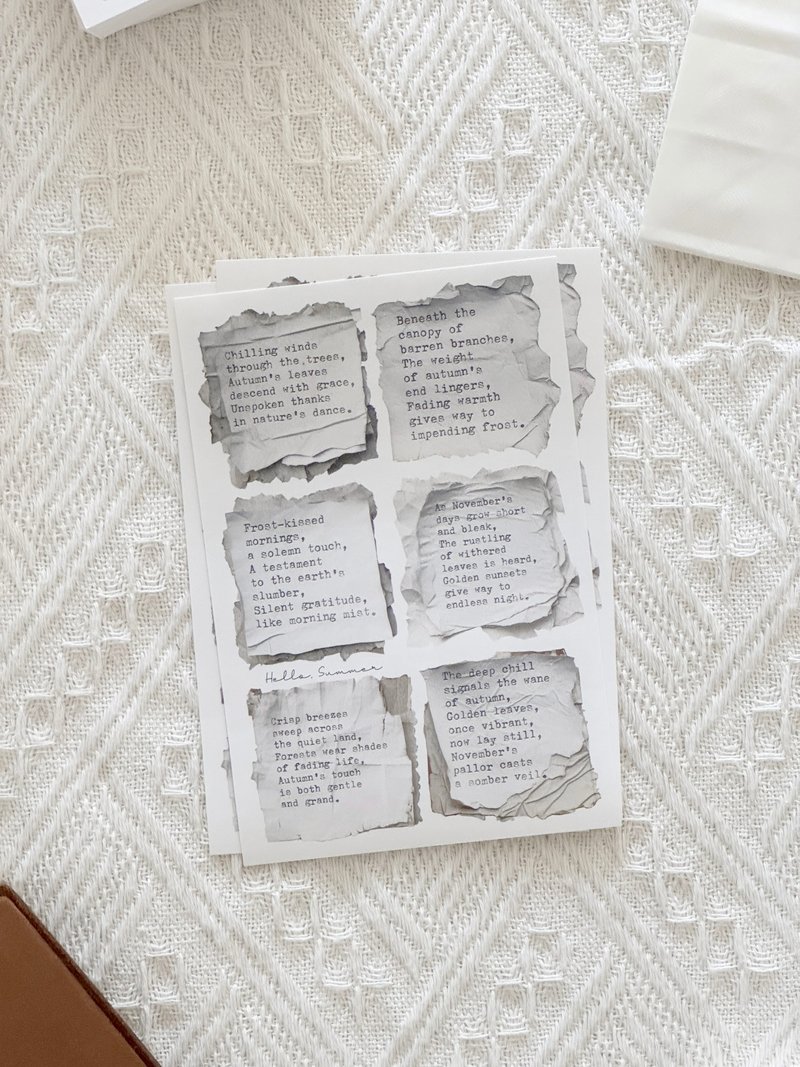 Chilling winds
through the trees,
Autumn's leaves
descend with grace,
Unspoken thanks
in nature's dance.
Beneath the
canopy of
barren branches,
The weight
of autumn's
end lingers,
Fading warmth
gives way to
impending frost.
Frost-kissed
mornings,
a solemn touch,
A testament
to the earth's
slumber,
Silent gratitude,
like morning mist.
As November's
days grow short
and bleak,
The rustling
of withered
leaves is heard,
Golden sunsets
give way to
endless night.
Hello, Summer
Crisp breezes
sweep across
the quiet land,
Forests wear shades
of fading life,
Autumn's touch
is both gentle
and grand.
The deep chill
signals the wane
of autumn,
Golden leaves,
once vibrant,
now lay still,
November's
pallor casts
a somber veil.